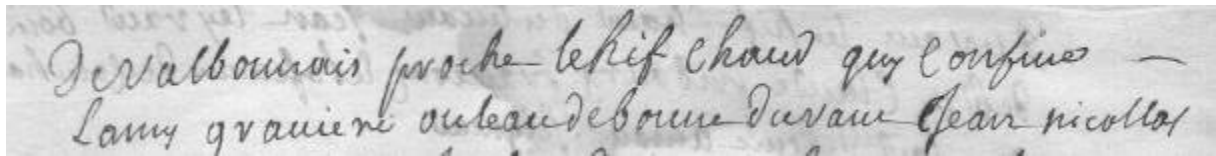 De Valbounais proche le Rif Chaud quy Confine —
Lamy graviere ou leau de bonne du vaut Jean nicollas